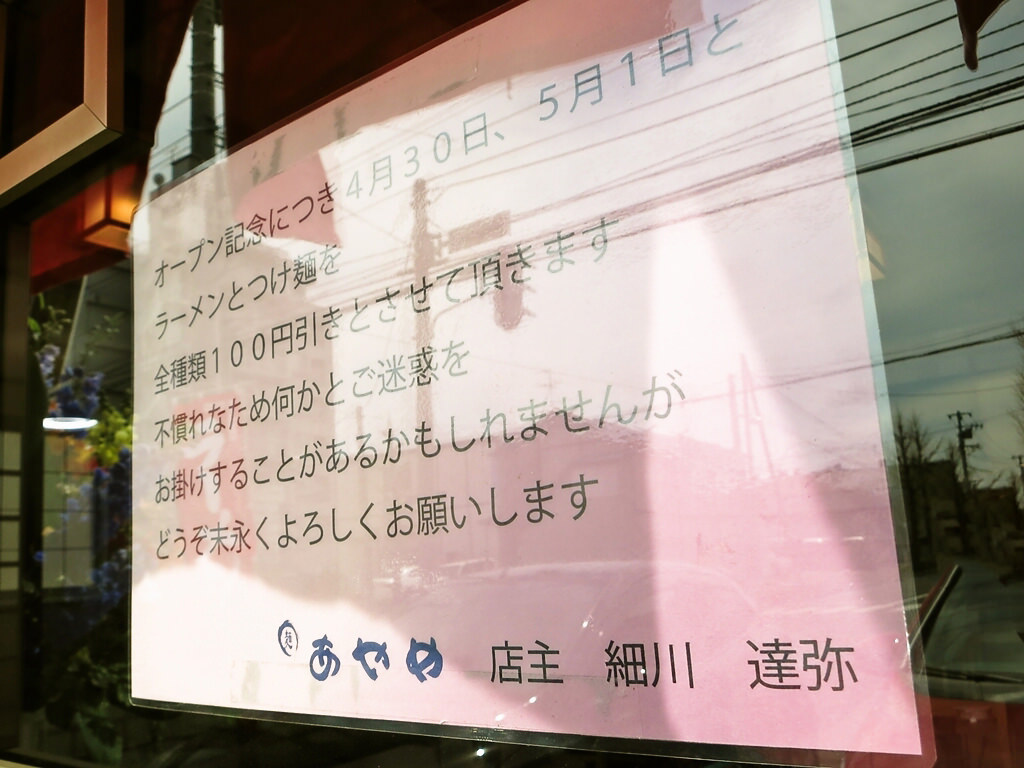 オープン記念につき4月30日、5月1日と
ラーメンとつけ麺を
全種類100円引きとさせて頂きます
不慣れなため何かとご迷惑を
お掛けすることがあるかもしれませんが
どうぞ末永くよろしくお願いします
あやめ 店主 細川 達弥